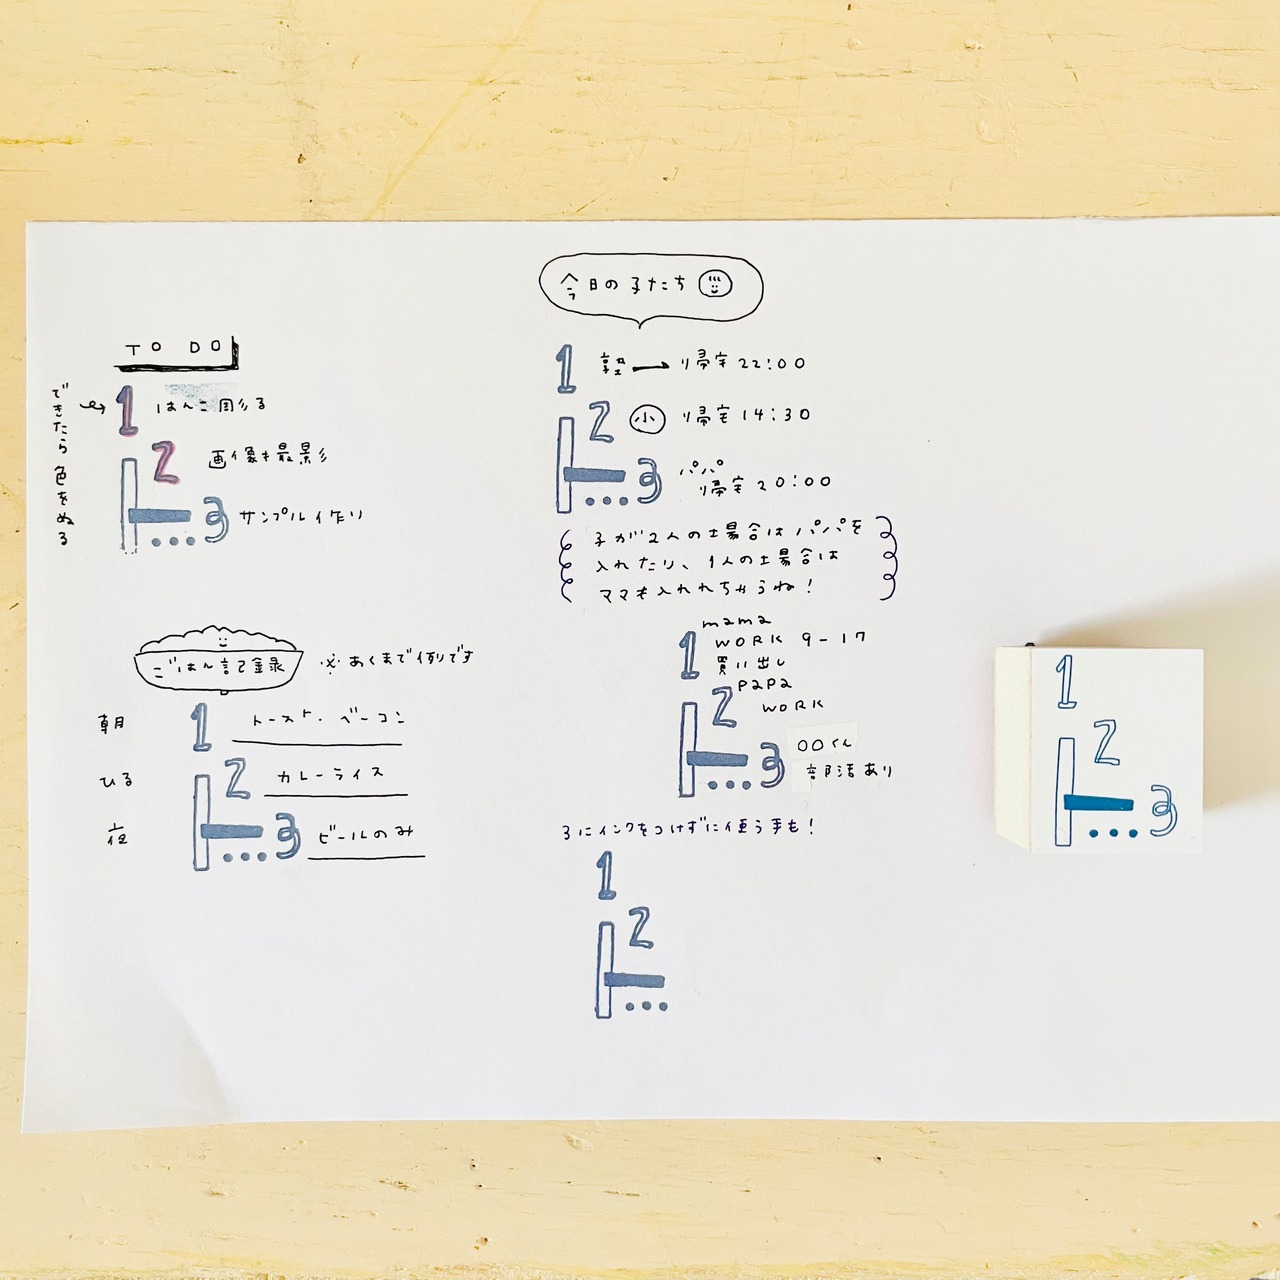 TO DO
できたら色をぬる
1 はんこ同彡る
2 画像も最影
3 サンプル作り
今日の子たち
1 塾→帰宅22:00
2 小 帰宅14:30
3 パパ
帰宅20:00
子が2人の場合はパパを
入れたり、1人の場合は
ママも入れれちゃうね!
ごはん記録
※あくまで例です
朝 1 トースト・ベーコン
ひる 2 カレーライス
夜 3 ビールのみ
mama
1 WORK 9-17
買い出し
2 papa
WORK
3 〇〇くん
部活あり
3にインクをつけずに使う手も!
1
2
1
2
3